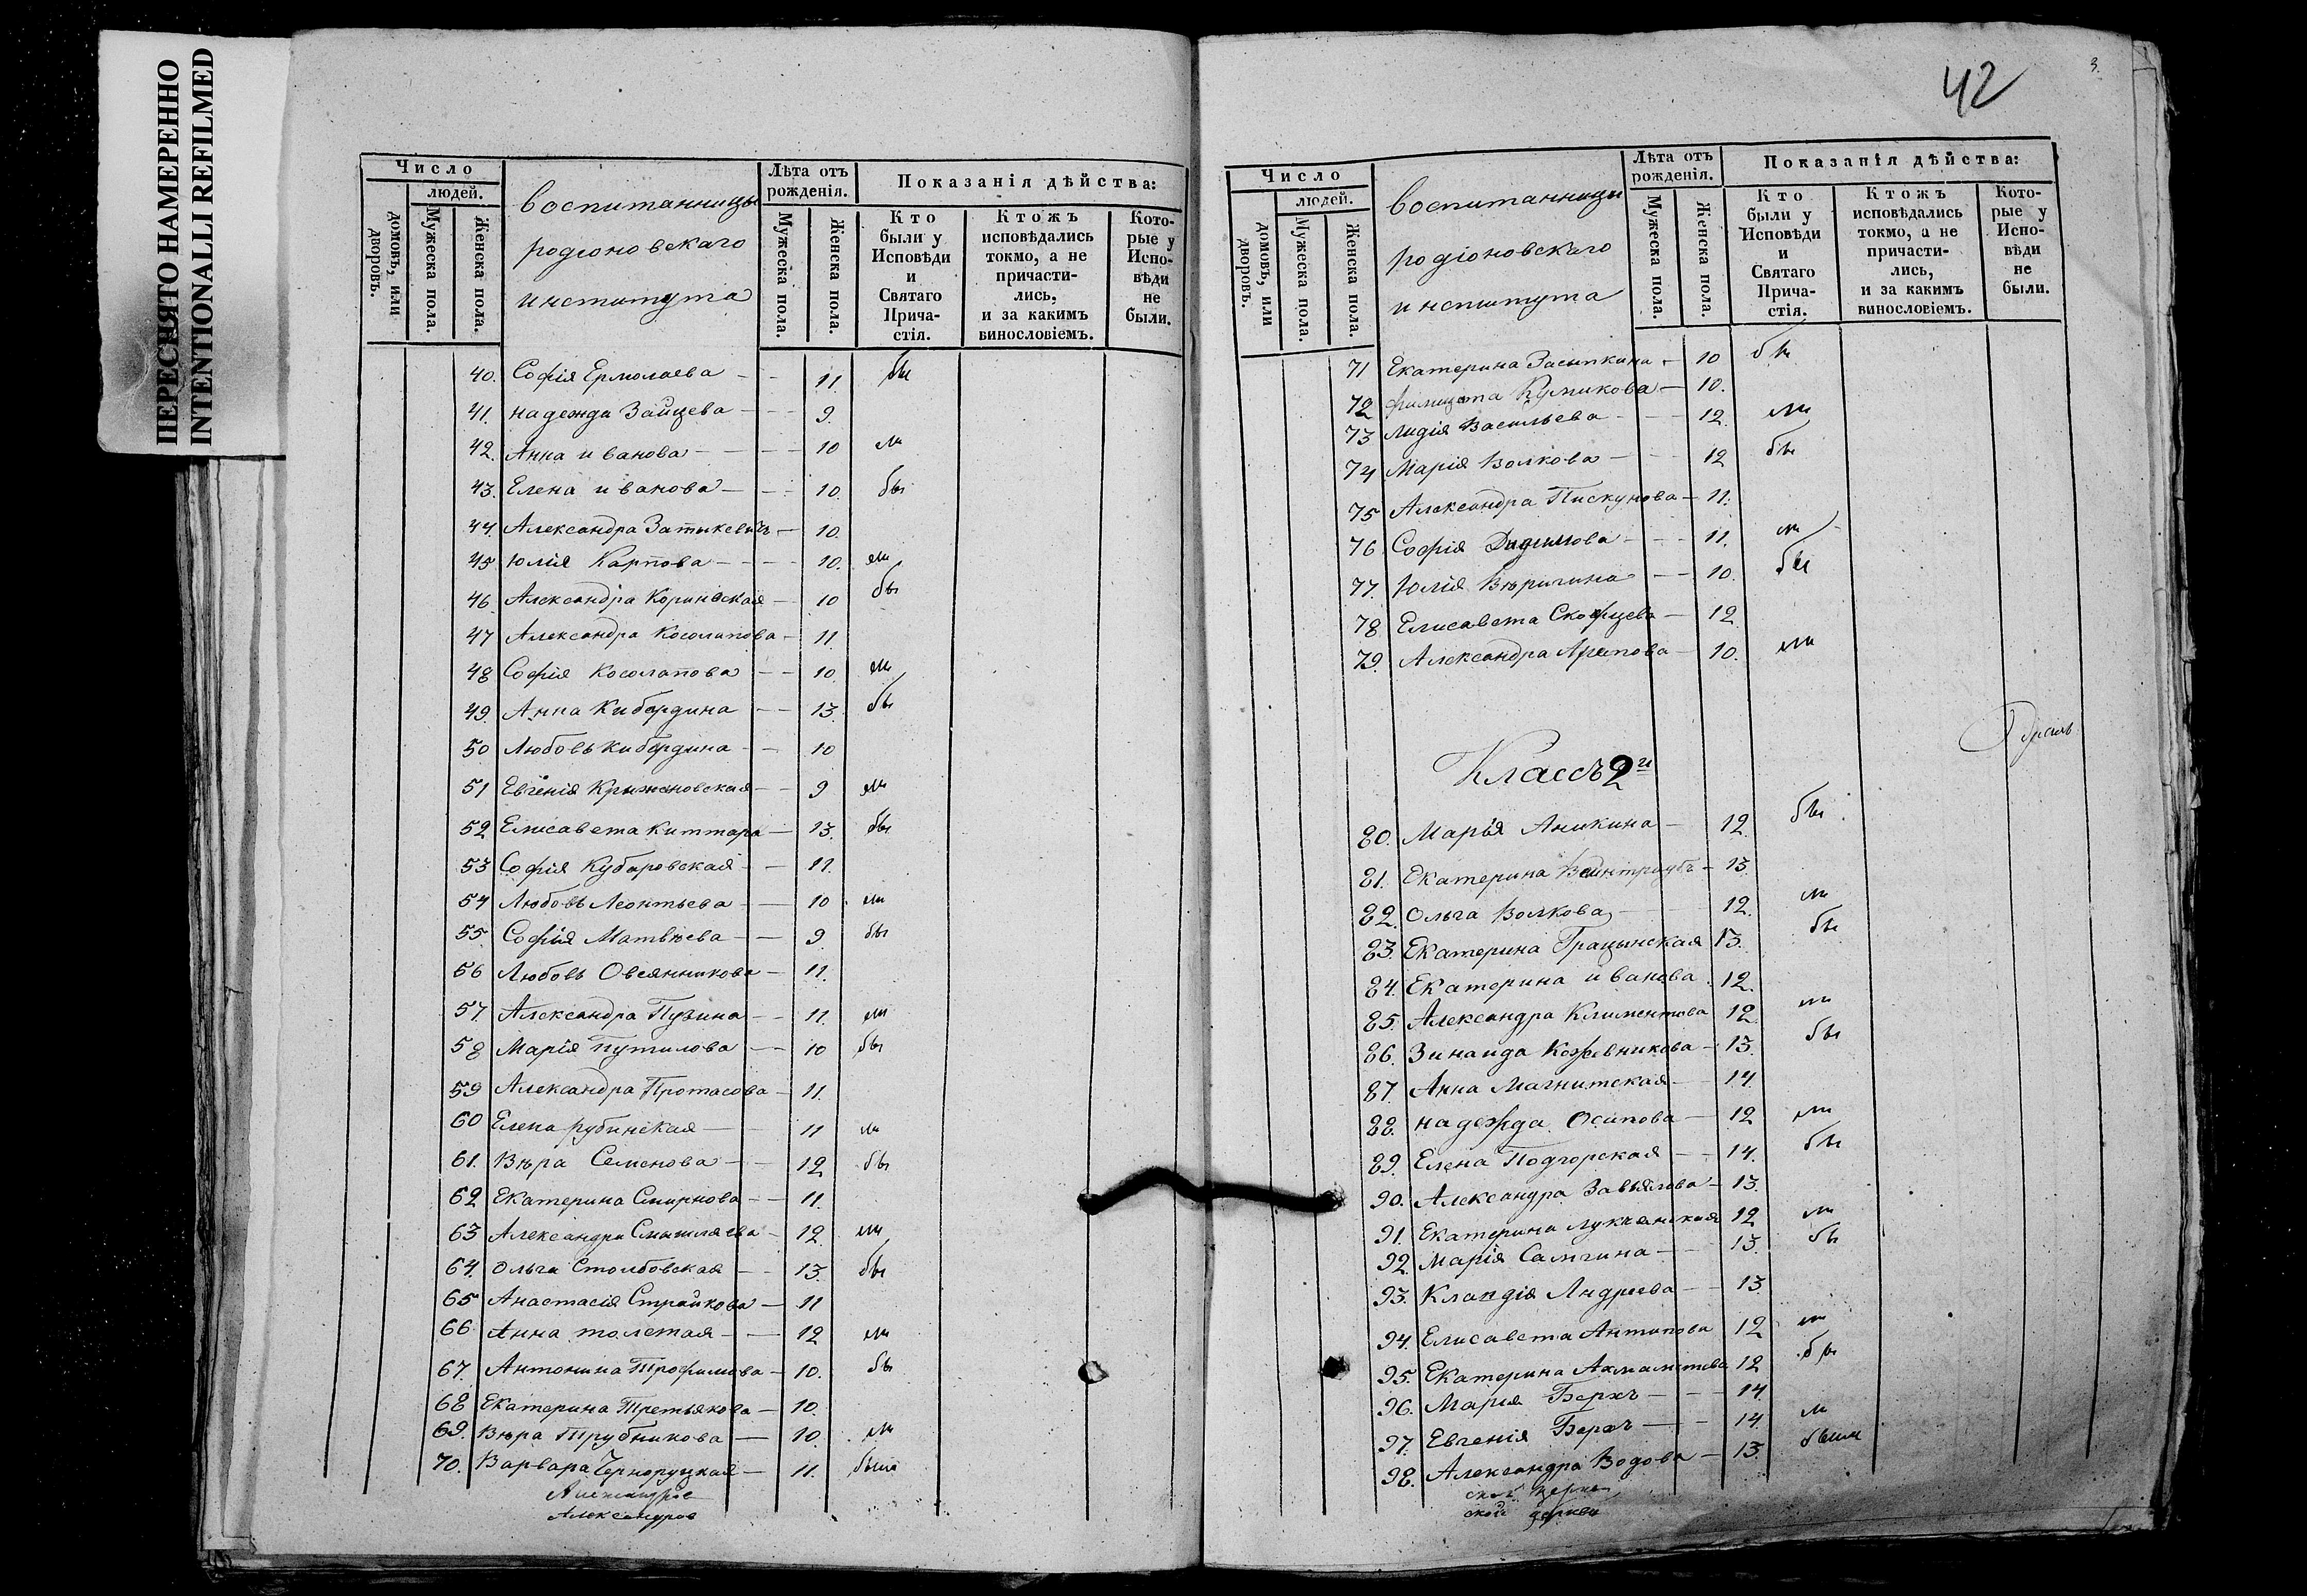 ПЕРЕСНЯТО НАМЕРЕННО
INTENTIONALLI REFILMED
Число
людей.
домовъ, или дворовъ.
Мужеска пола.
Женска пола.
воспитанницы
родіоновскаго
института
Лѣта отъ рожденія.
Мужеска пола.
Женска пола.
Показанія дѣйства:
Кто были у Исповѣди и Святаго Прича-стія.
Ктожъ исповѣдались токмо, а не причасти-лись, и за какимъ винословіемъ.
Кото-рые у Испо-вѣди не были.
40. Софія Ермолаева — 11. бы
41. надежда Зайцева — 9.
42. Анна иванова — 10 ли
43. Елена иванова — 10. бы
44. Александра Затыкевичъ — 10.
45 Юлія Карпова — 10. ли
46. Александра Коринѳская — 10 бы
47 Александра Косолапова — 11.
48 Софія Косолапова — 10. ли
49. Анна Кибардина — 13. бы
50 Любовь Кибардина — 10
51 Евгенія Крыжановская — 9 ли
52 Елисавета Киттара — 13. бы
53 Софія Кубаровская — 11.
54 Любовь Леонтьева — 10 ли
55. Софія Матвѣева — 9. бы
56 Любовь Овсянникова — 11.
57. Александра Пузина — 11. ли
58 Марія Путилова — 10 бы
59 Александра Протасова — 11.
60 Елена рубинская — 11 ли
61. Вѣра Семенова — 12 бы
62 Екатерина Смирнова — 11.
63 Александра Смышляева — 12. ли
64. Ольга Столбовская — 13. бы
65 Анастасія Страйкова — 11
66 Анна толстая — 12 ли
67. Антонина Трофимова — 10. бы
68 Екатерина Третьякова — 10.
69. Вѣра Трубникова — 10. ли
70. Варвара Черноруцкая — 11. были
Александров
Александров
42
3.
Число
людей.
домовъ, или дворовъ.
Мужеска пола.
Женска пола.
воспитанницы
родіоновскаго
института
Лѣта отъ рожденія.
Мужеска пола.
Женска пола.
Показанія дѣйства:
Кто были у Исповѣди и Святаго Прича-стія.
Ктожъ исповѣдались токмо, а не причасти-лись, и за какимъ винословіемъ.
Кото-рые у Испо-вѣди не были.
71 Екатерина Засыпкина — 10 бы
72 Куликова — 10.
73 Лидія Васильева — 12. ли
74 Марія Волкова — 12 бы
75 Александра Пискунова — 11.
76 Софія — 11. ли
77. Юлія Вѣригина — 10. бы
78 Елисавета — 12
79. Александра Арапова — 10. ли
Классъ 2й
80. Марья Аникина — 12. бы
81. Екатерина Вейнтраубъ — 13.
82. Ольга Волкова — 12. ли
83. Екатерина Грацынская 13. бы
84. Екатерина иванова 12.
85. Александра Климентова 12 ли
86. Зинаида Кожевникова — 13. бы
87. Анна Магнитская — 14.
88. надежда Осипова — 12 ли
89. Елена Подгорская — 14. бы
90. Александра Завьялова — 13.
91. Екатерина 12 ли
92. Марія Самгина — 13. бы
93. Клавдія Андреева — 13
94. Елисавета Антипова 12 ли
95. Екатерина Ахматова 12 бы
96. Марія Берхъ — 14.
97. Евгенія Берхъ — 14. ли
98. Александра Водова — 13. были
ской церкви
ской церкви